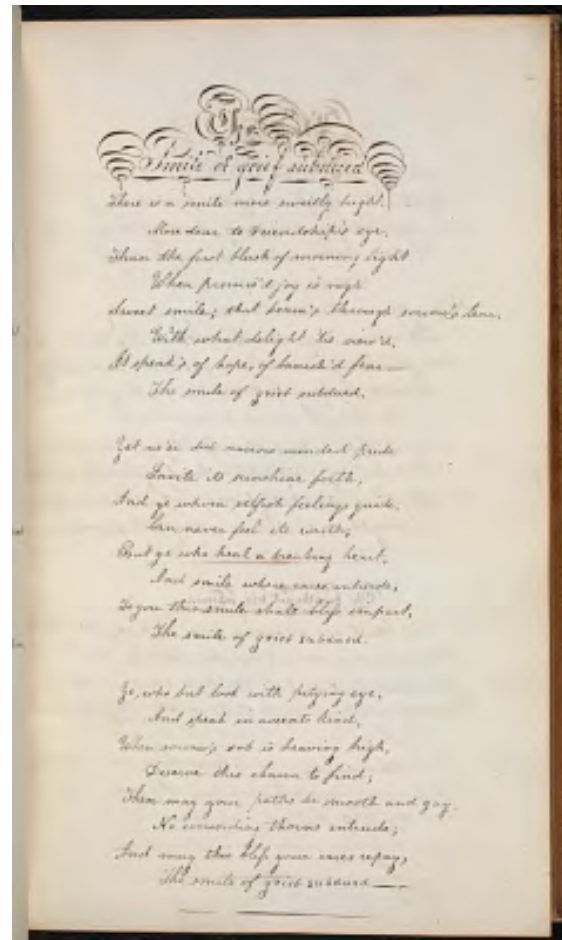 The
Smile of grief subdued
There is a smile more sweetly bright,
More dear to Friendship's eye,
Than the first blush of morning light
When promis'd joy is nigh
Sweet smile; that beam's through sorrow's tear,
With what delight tis view'd,
It speak's of hope, of banish'd fear —
The smile of grief subdued.
Yet ne'er did narrow minded pride
Invite its sunshine forth,
And ye whom selfish feelings guide,
Can never feel its worth;
But ye who heal a breaking heart,
And smile where cares intrude,
To you this smile shall bless impart,
The smile of grief subdued.
Ye, who but look with pitying eye,
And speak in accents kind,
When sorrow's sob is heaving high,
Deserve this charm to find;
Then may your paths be smooth and gay.
No thorns intrude;
And may this bless your cares repay,
The smile of grief subdued —